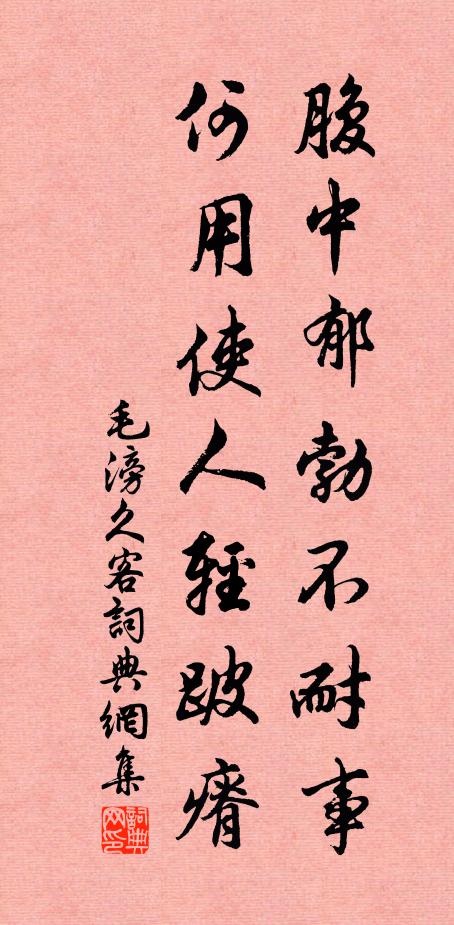 腹中郁勃不耐事
何用使人輕跛瘠
毛滂久客詞典網集
詞典网印